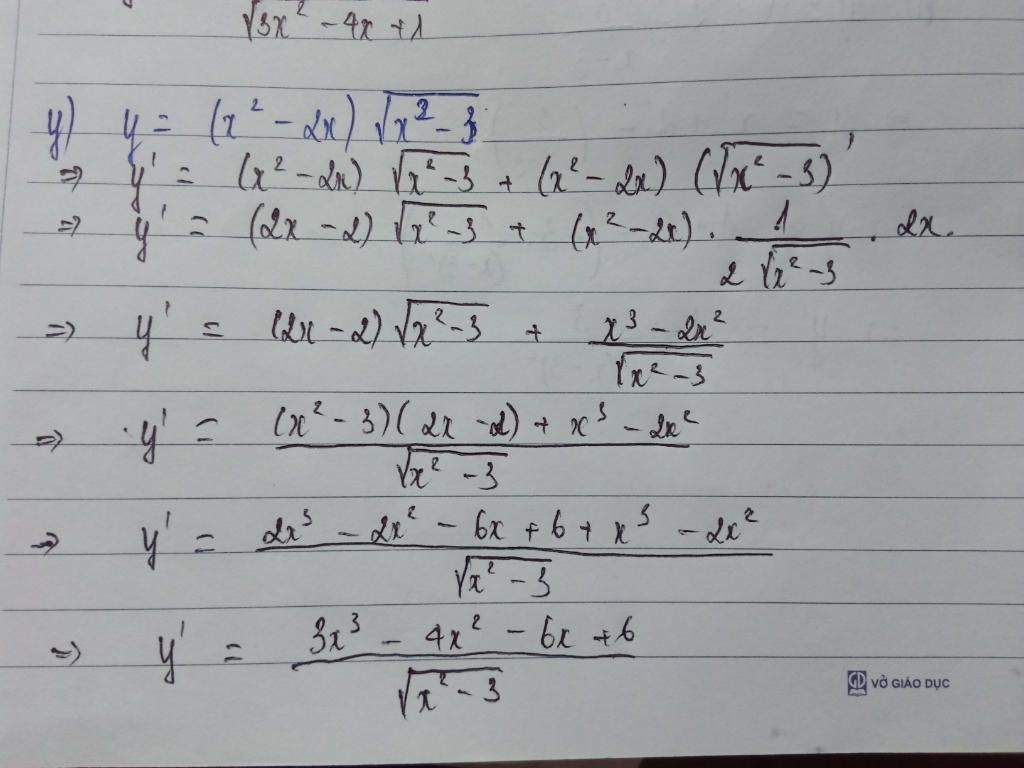 √(3x² - 4x + 1)
y) y = (x² - 2x) √(x² - 3)
⇒ y' = (x² - 2x) √(x² - 3) + (x² - 2x) (√(x² - 3))'
⇒ y' = (2x - 2) √(x² - 3) + (x² - 2x) · 1 / (2√(x² - 3)) · 2x.
⇒ y' = (2x - 2) √(x² - 3) + (x³ - 2x²) / √(x² - 3)
⇒ y' = ((x² - 3)(2x - 2) + x³ - 2x²) / √(x² - 3)
⇒ y' = (2x³ - 2x² - 6x + 6 + x³ - 2x²) / √(x² - 3)
⇒ y' = (3x³ - 4x² - 6x + 6) / √(x² - 3)
VỞ GIÁO DỤC